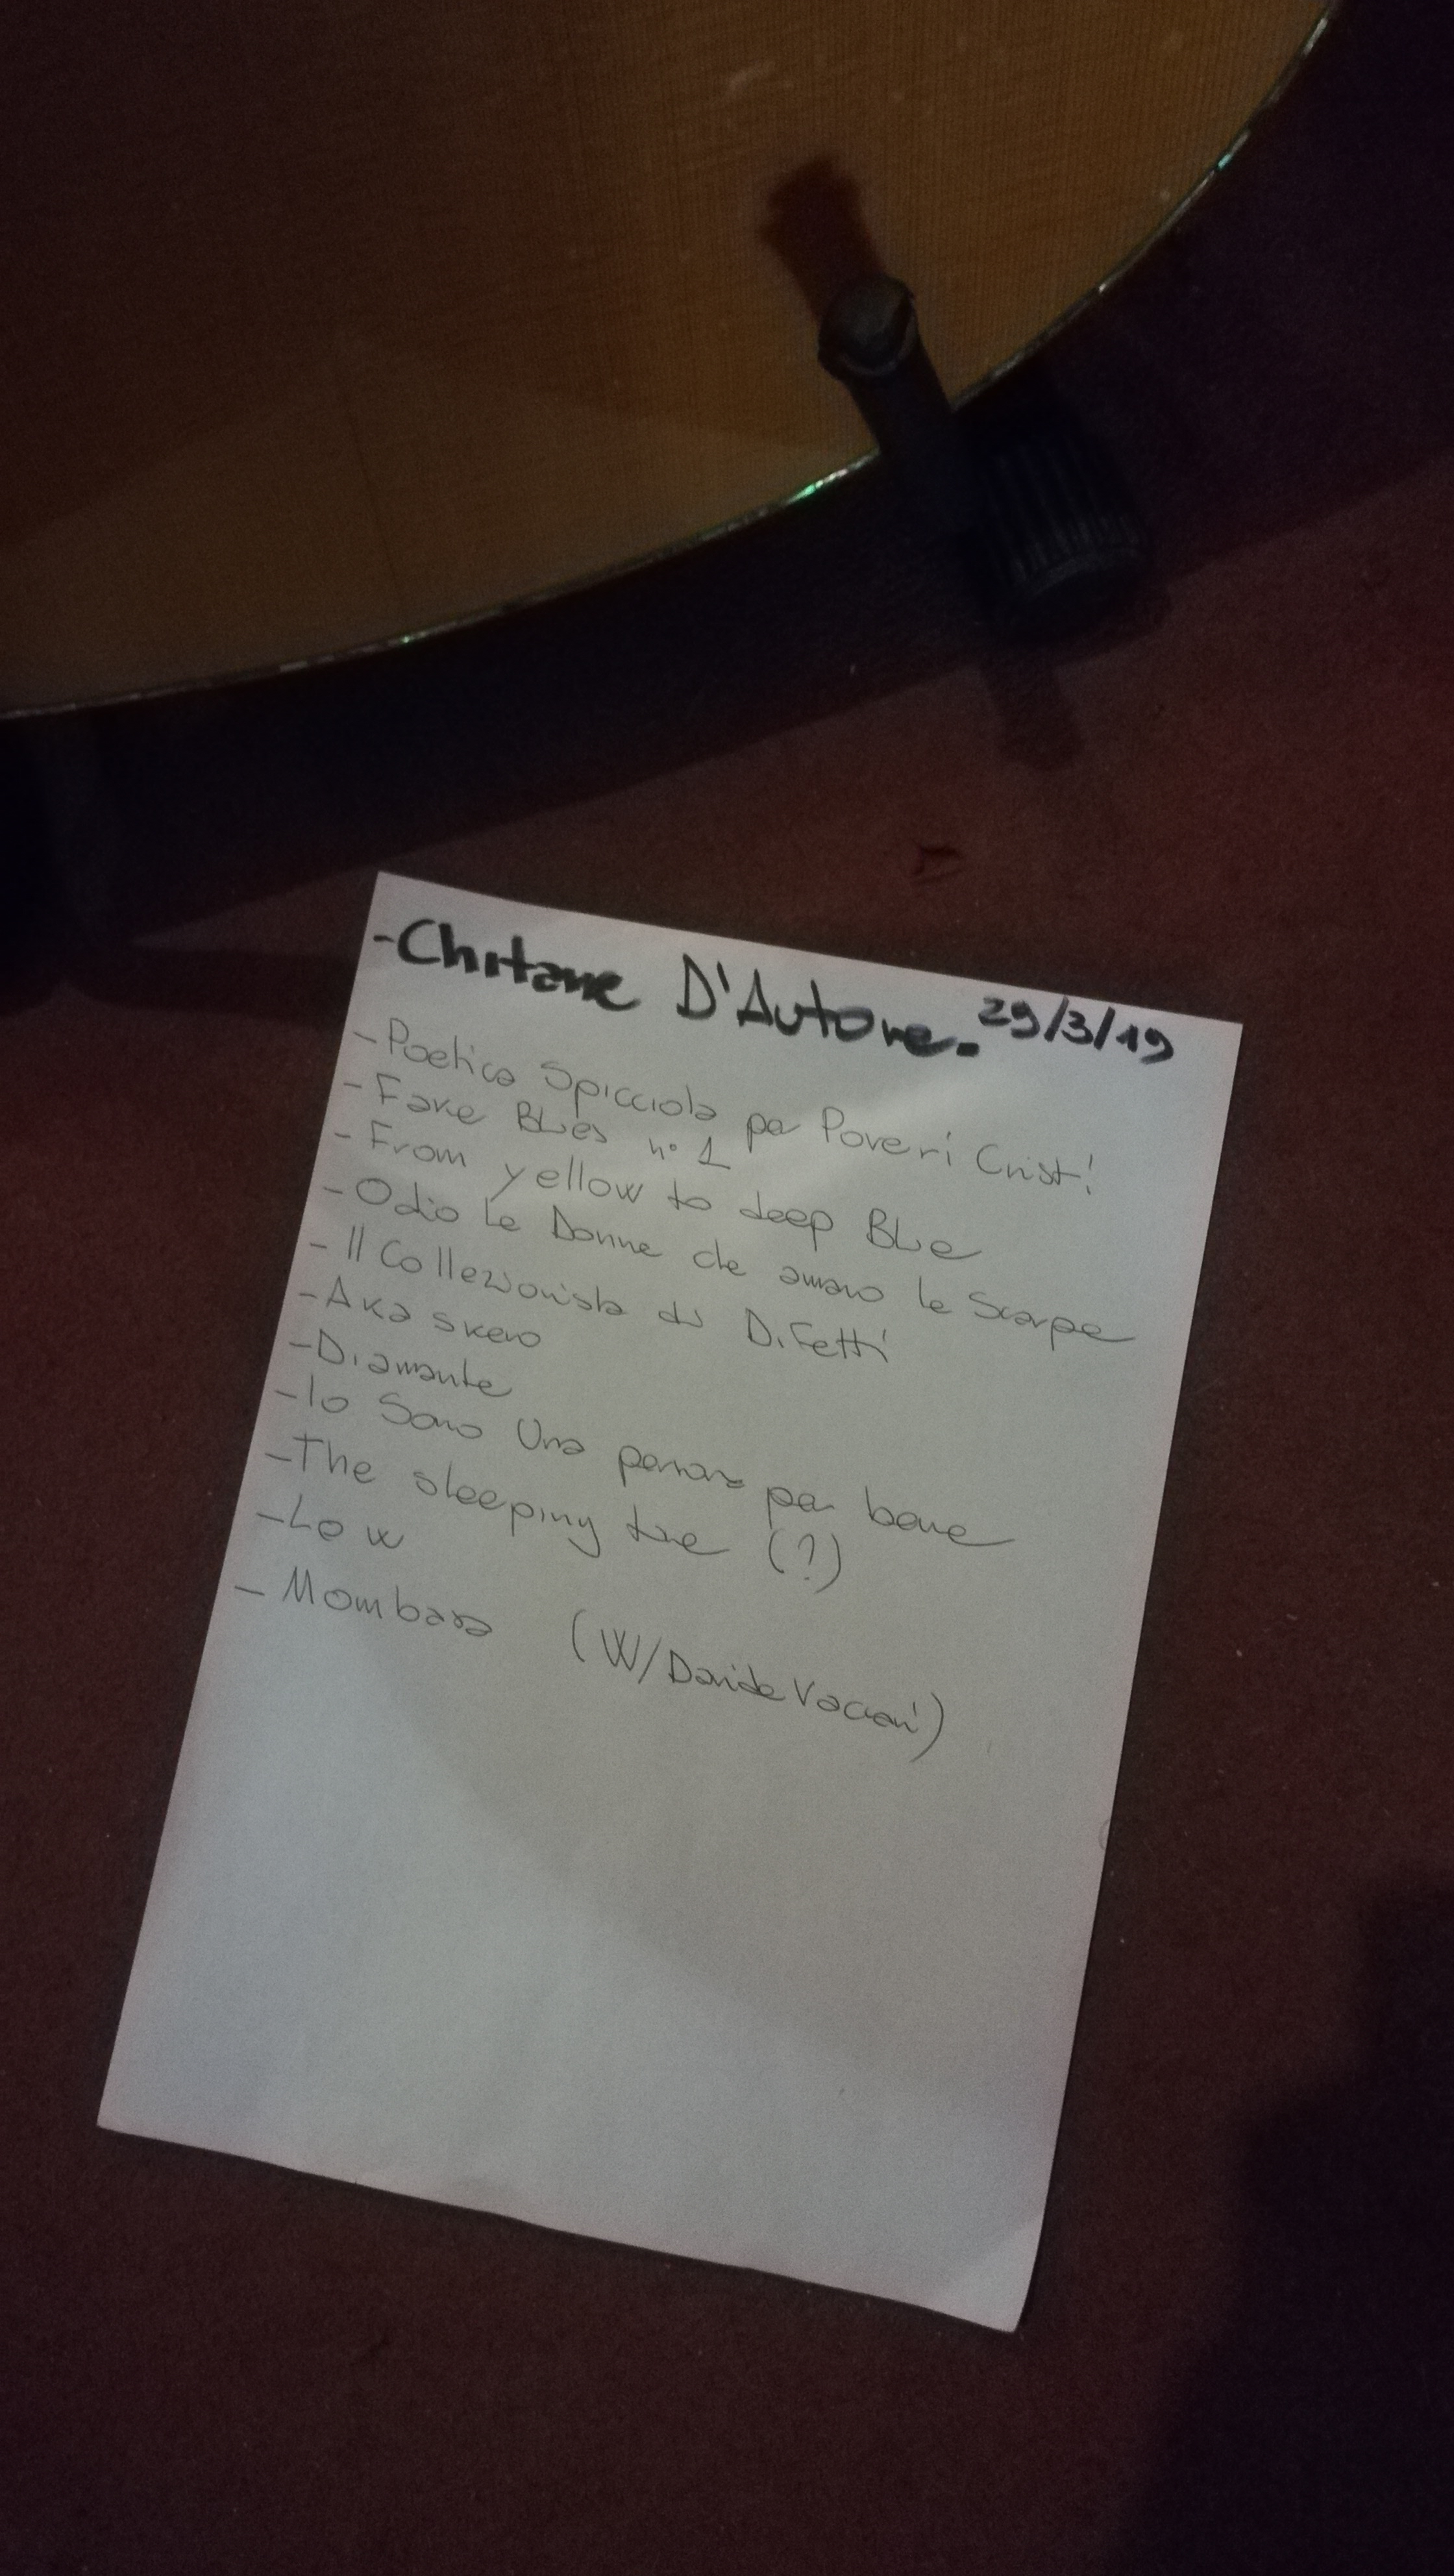 -Chitarre D'Autore. 29/3/19
-Poetica Spicciola per Poveri Cristi
-Fake Blues n° 1
-From yellow to deep Blue
-Odio le Donne che amano le Scarpe
-Il Collezionista di Difetti
-Aka skero
-Diamante
-Io Sono Una persona per bene
-The sleeping tune (?)
-Low
-Mombasa (W/Davide Vaccari)